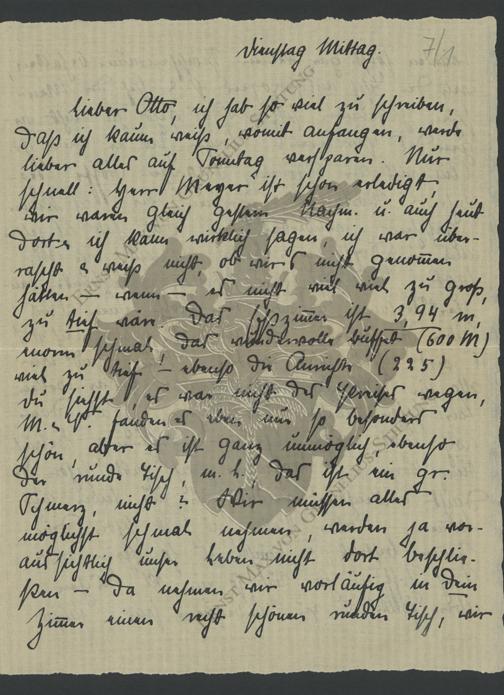 Dienstag Mittag.
7/1
lieber Otto, ich hab so viel zu schreiben,
daß ich kaum weiß, womit anfangen, werde
lieber alles auf Sonntag versparen. Nur
schnell: Herr Meyer ist schon erledigt,
wir waren gleich gestern Nachm. u. auch heut
dort & ich kann wirklich sagen, ich war über-
rascht & weiß nicht, ob wir's nicht genommen
hätten – wenn – es nicht viel viel zu groß,
zu tief wäre. Das Eßzimmer ist 3,94 m,
enorm schmal, das wundervolle Buffet (600 M)
viel zu tief – ebenso die Anrichte (225)
du siehst, es war nicht des Preises wegen,
M. & fanden es eben nur so besonders
schön, aber es ist ganz unmöglich, ebenso
der runde Tisch, m. l.! das ist ein gr.
Schmerz, nicht? Wir müssen alles
möglichst schmal nehmen, werden ja vor-
aussichtlich unser Leben nicht dort beschlie-
ßen – da nehmen wir vorläufig in Dein
Zimmer einen recht schönen runden Tisch, wir
ERNST MAX VON GRUNELIUS-STIFTUNG